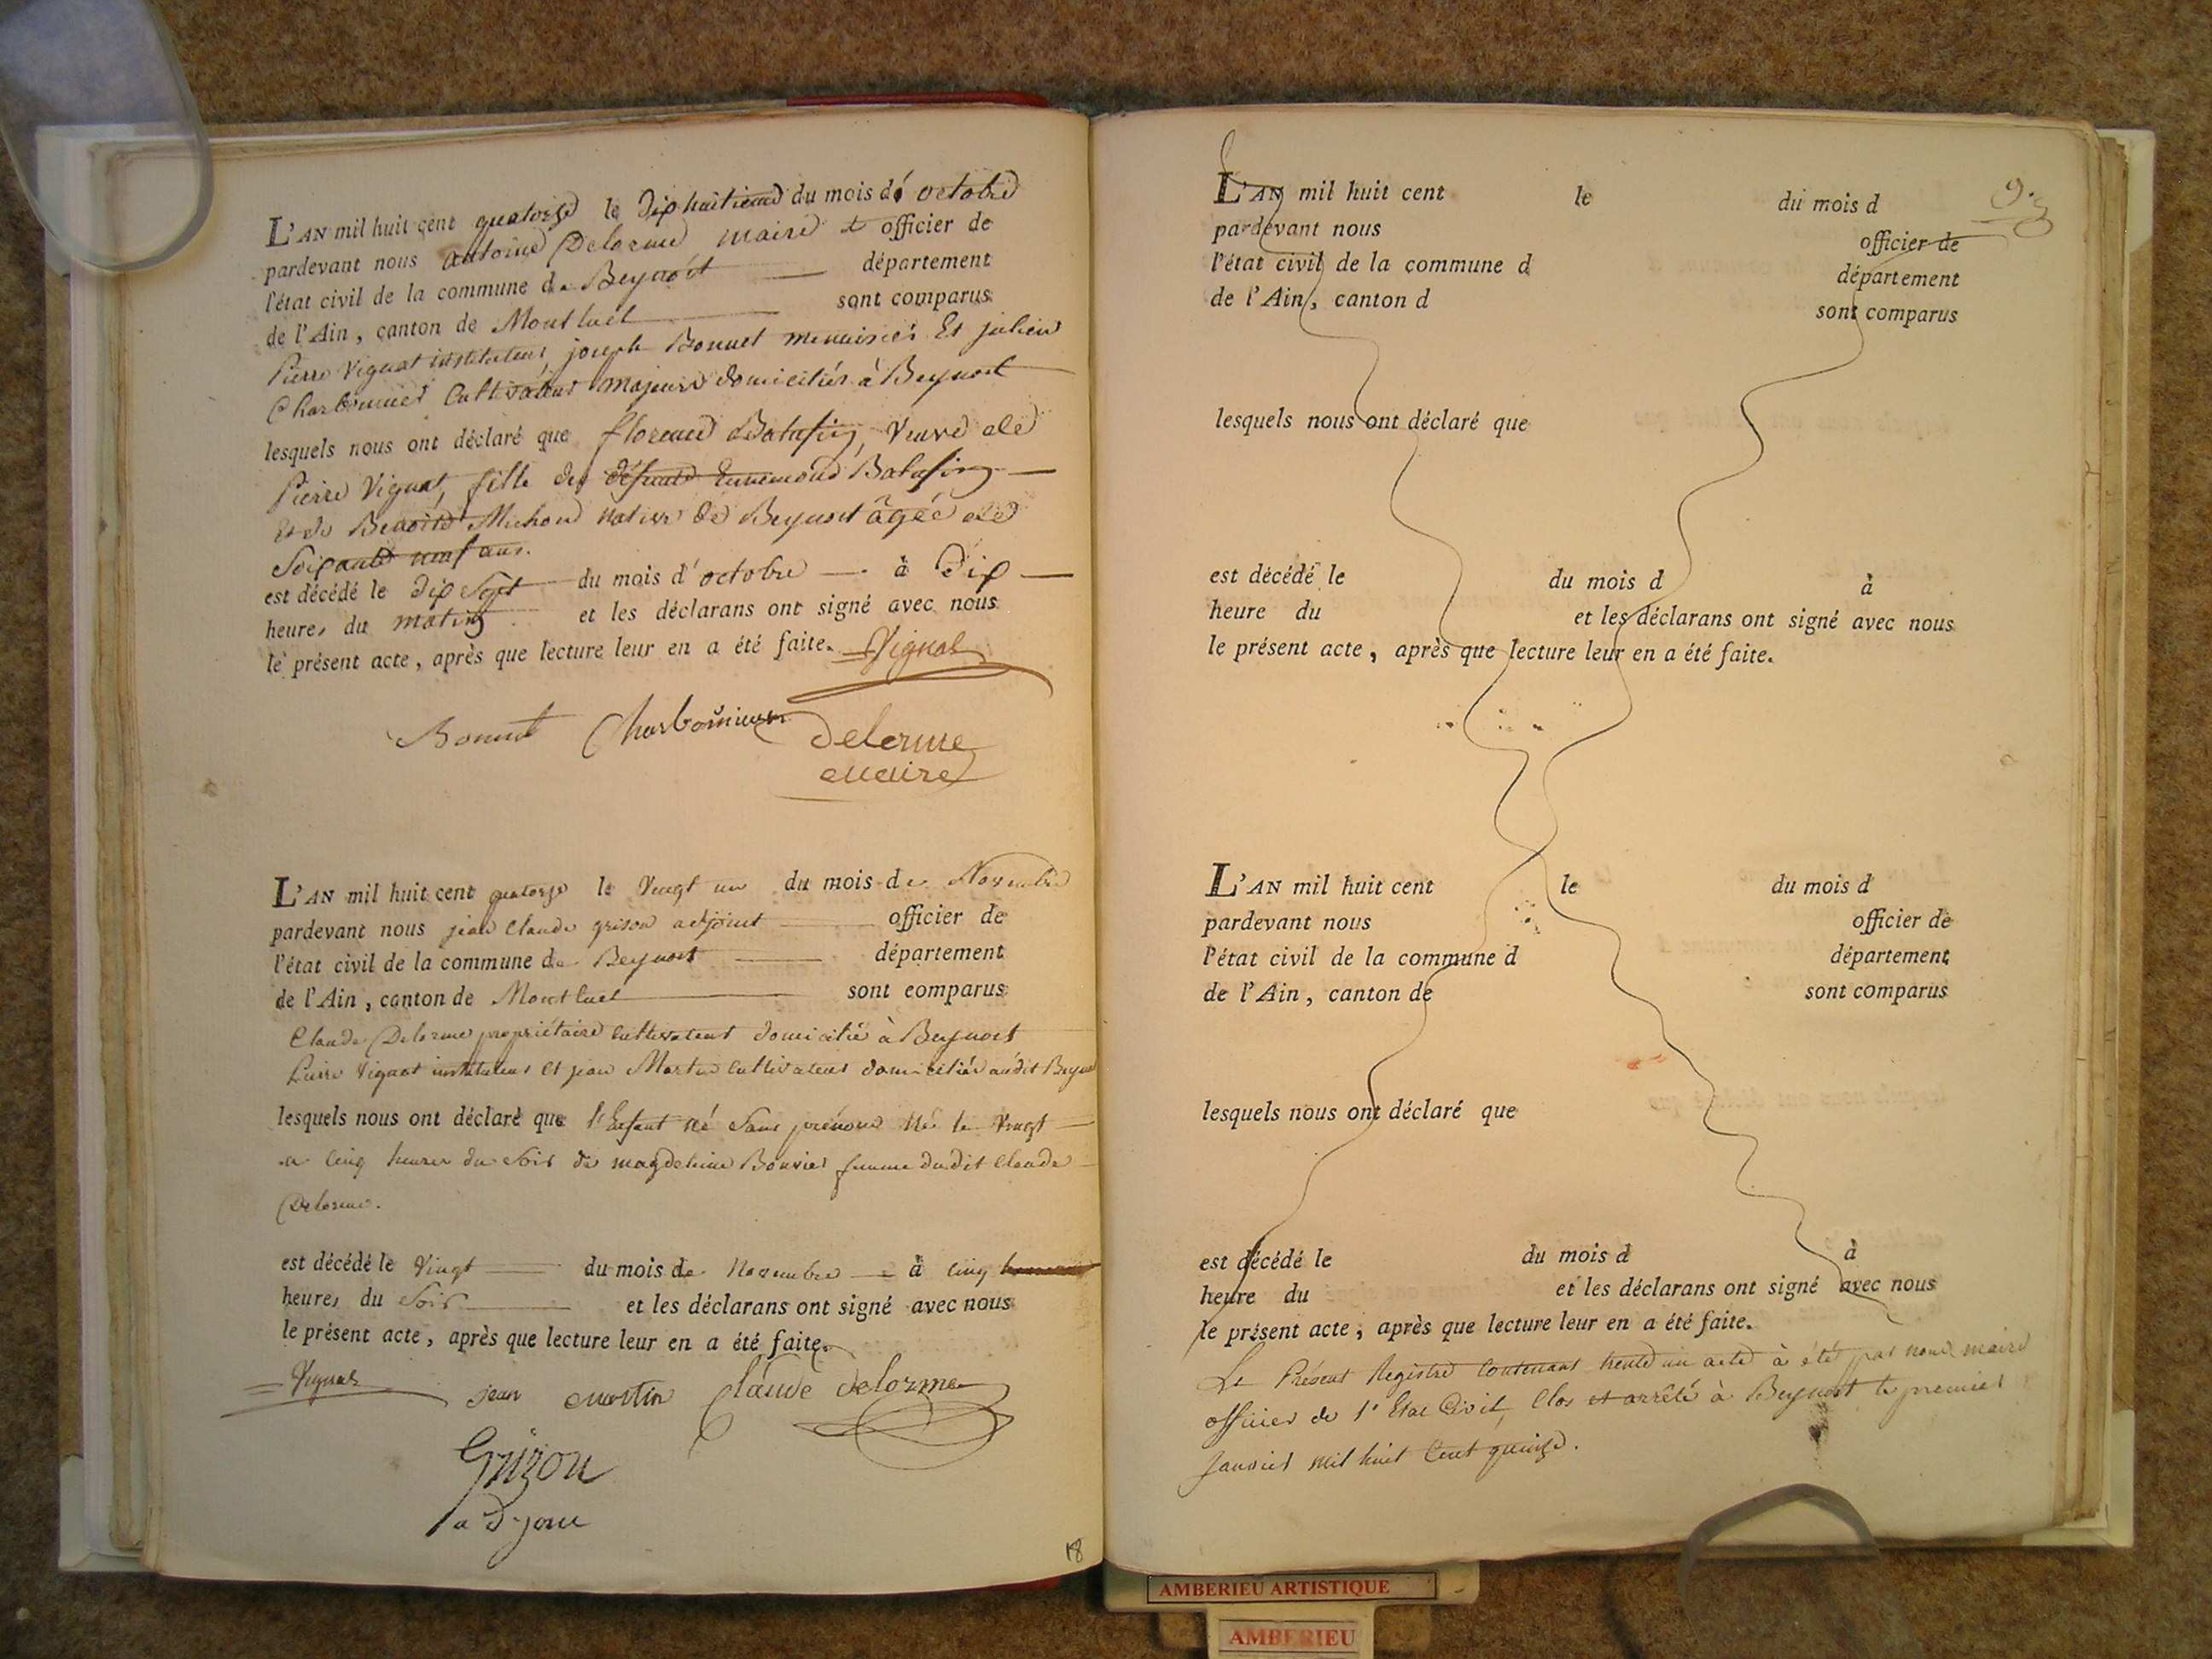 L'AN mil huit cent quatorze le dix huitieme du mois de octobre
pardevant nous antoine Delorme maire et officier de
l'état civil de la commune de Beynost département
de l'Ain, canton de Montluel sont comparus
Pierre Vignat instituteur, joseph Bonnet menuisier Et julien
Charbonnier Cultivateur majeurs domiciliés à Beynost
lesquels nous ont déclaré que florence veuve de
Pierre Vignat, fille de défunt Ennemond
et de Benoite Michon native de Beynost âgée de
Soixante neuf ans.
est décédé le dix Sept du mois d'octobre à Dix
heures du matin et les déclarans ont signé avec nous
le présent acte, après que lecture leur en a été faite. Vignat
Bonnet Charbonnier delorme
maire
L'AN mil huit cent quatorze le Vingt un du mois de Novembre
pardevant nous jean Claude grison adjoint officier de
l'état civil de la commune de Beynost département
de l'Ain, canton de Montluel sont comparus
Claude Delorme propriétaire cultivateur domicilié à Beynost
Pierre Vignat instituteur et jean Martin cultivateur domiciliés audit
lesquels nous ont déclaré que l'Enfant né Sans prénom Né le Vingt
a cinq heures du Soir de magdeleine Bouvier femme dudit Claude
Delorme.
est décédé le Vingt du mois de Novembre à cinq
heures du Soir et les déclarans ont signé avec nous
le présent acte, après que lecture leur en a été faite.
Vignat jean martin Claude delorme
Grizou
adjoin
18
L'AN mil huit cent le du mois d
pardevant nous officier de
l'état civil de la commune d département
de l'Ain, canton d sont comparus
lesquels nous ont déclaré que
est décédé le du mois d à
heure du et les déclarans ont signé avec nous
le présent acte, après que lecture leur en a été faite.
L'AN mil huit cent le du mois d
pardevant nous officier de
l'état civil de la commune d département
de l'Ain, canton de sont comparus
lesquels nous ont déclaré que
est décédé le du mois d à
heure du et les déclarans ont signé avec nous
le présent acte, après que lecture leur en a été faite.
Le Présent Registre Contenant trente un acte à été par nous maire
officier de l'Etat Civil, Clos et arrêté à Beynost le premier
Janvier mil huit Cent quinze.
AMBERIEU ARTISTIQUE
AMBERIEU